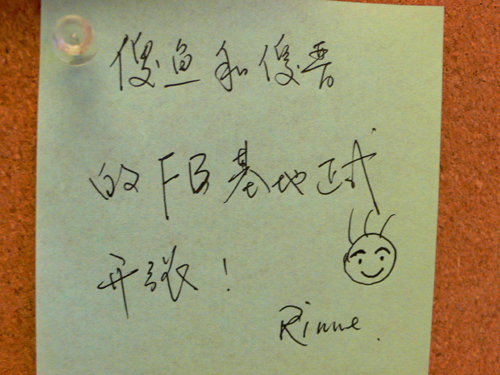 傻鱼和傻
的FB基地正式
开张！
Rinne.